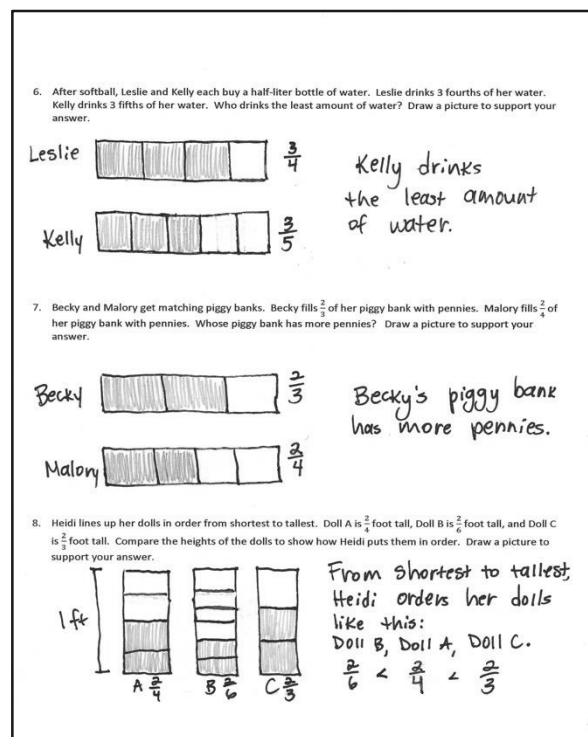 6. After softball, Leslie and Kelly each buy a half-liter bottle of water. Leslie drinks 3 fourths of her water.
Kelly drinks 3 fifths of her water. Who drinks the least amount of water? Draw a picture to support your
answer.
Leslie 3/4
Kelly drinks
the least amount
of water.
Kelly 3/5
7. Becky and Malory get matching piggy banks. Becky fills 2/3 of her piggy bank with pennies. Malory fills 2/4 of
her piggy bank with pennies. Whose piggy bank has more pennies? Draw a picture to support your
answer.
Becky 2/3
Becky's piggy bank
has more pennies.
Malory 2/4
8. Heidi lines up her dolls in order from shortest to tallest. Doll A is 2/4 foot tall, Doll B is 2/6 foot tall, and Doll C
is 2/3 foot tall. Compare the heights of the dolls to show how Heidi puts them in order. Draw a picture to
support your answer.
1 ft
A 2/4 B 2/6 C 2/3
From shortest to tallest,
Heidi orders her dolls
like this:
Doll B, Doll A, Doll C.
2/6 < 2/4 < 2/3